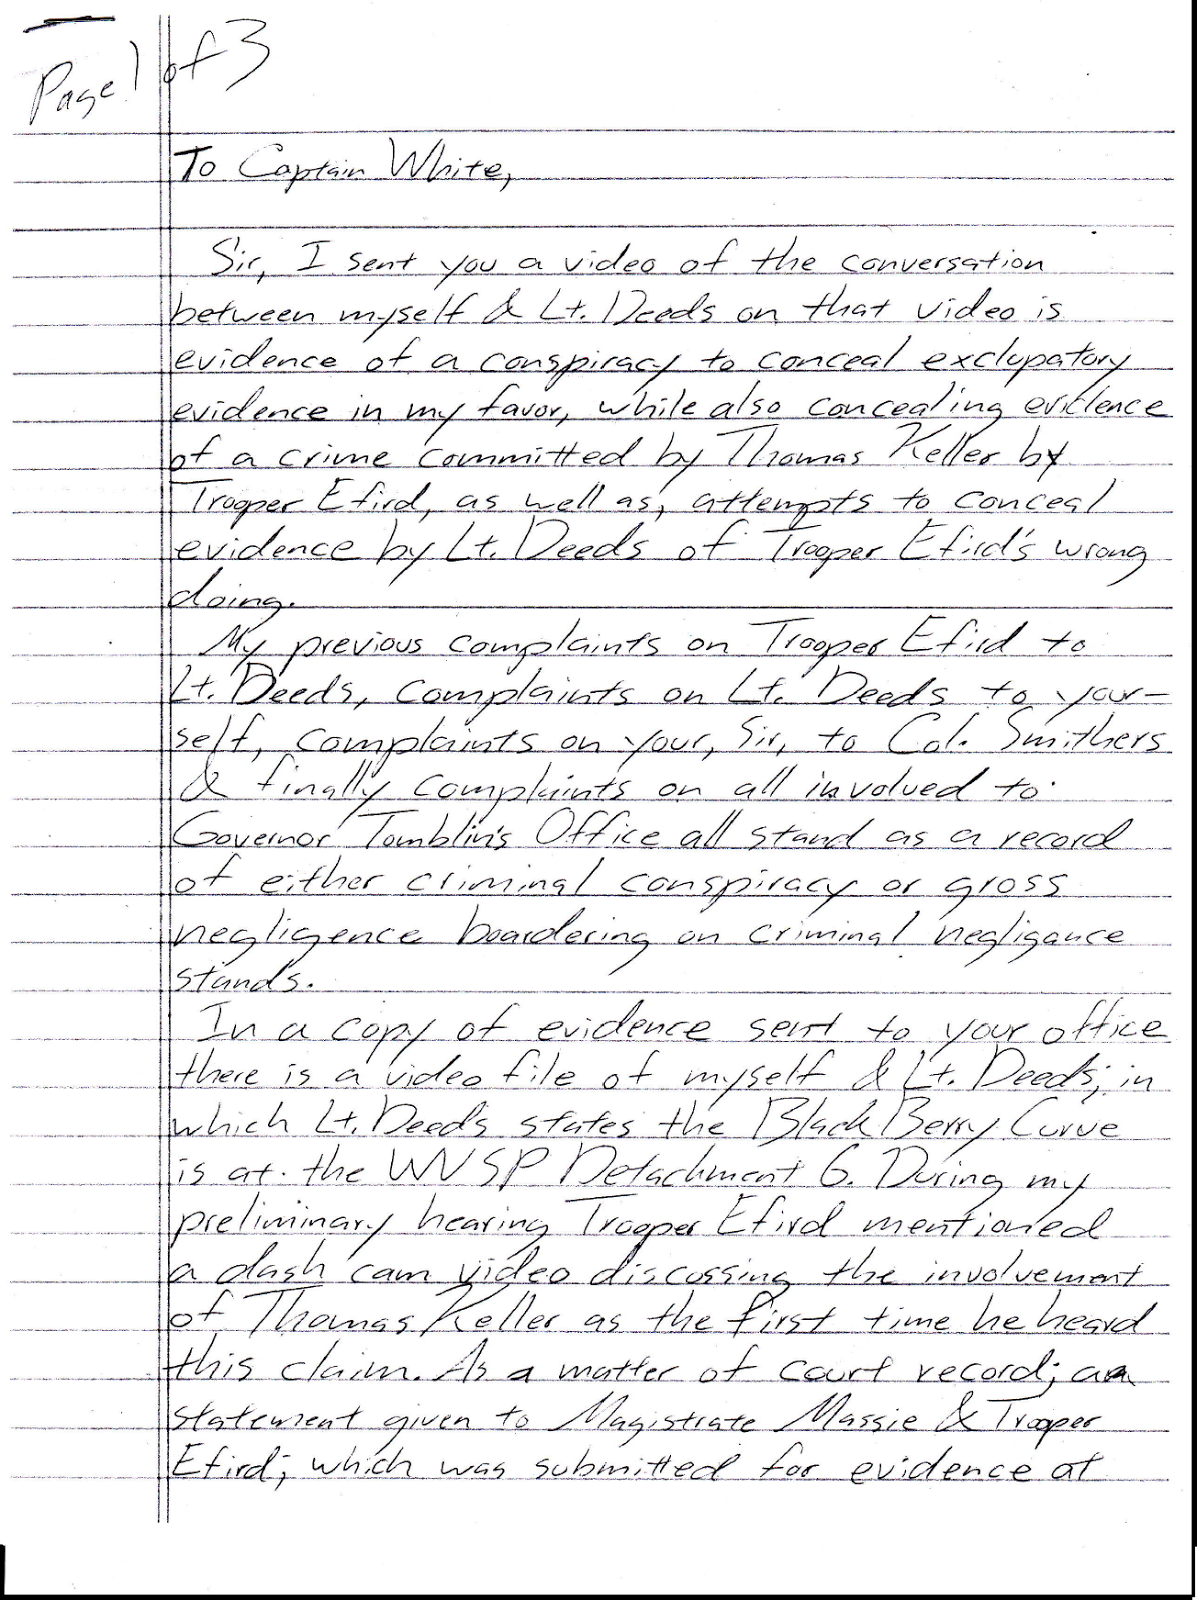 Page 1 of 3
To Captain White,
Sir, I sent you a video of the conversation
between myself & Lt. Deeds on that video is
evidence of a conspiracy to conceal exclupatory
evidence in my favor, while also concealing evidence
of a crime committed by Thomas Keller by
Trooper Efird, as well as, attempts to conceal
evidence by Lt. Deeds of Trooper Efird's wrong
doing.
My previous complaints on Trooper Efird to
Lt. Deeds, complaints on Lt. Deeds to your-
self, complaints on your, Sir, to Col. Smithers
& finally complaints on all involved to
Governor Tomblin's Office all stand as a record
of either criminal conspiracy or gross
negligence boardering on criminal negligance
stands.
In a copy of evidence sent to your office
there is a video file of myself & Lt. Deeds; in
which Lt. Deeds states the BlackBerry Curve
is at the WVSP Detachment 6. During my
preliminary hearing Trooper Efird mentioned
a dash cam video discussing the involvement
of Thomas Keller as the first time he heard
this claim. As a matter of court record; a
statement given to Magistrate Massie & Trooper
Efird; which was submitted for evidence at